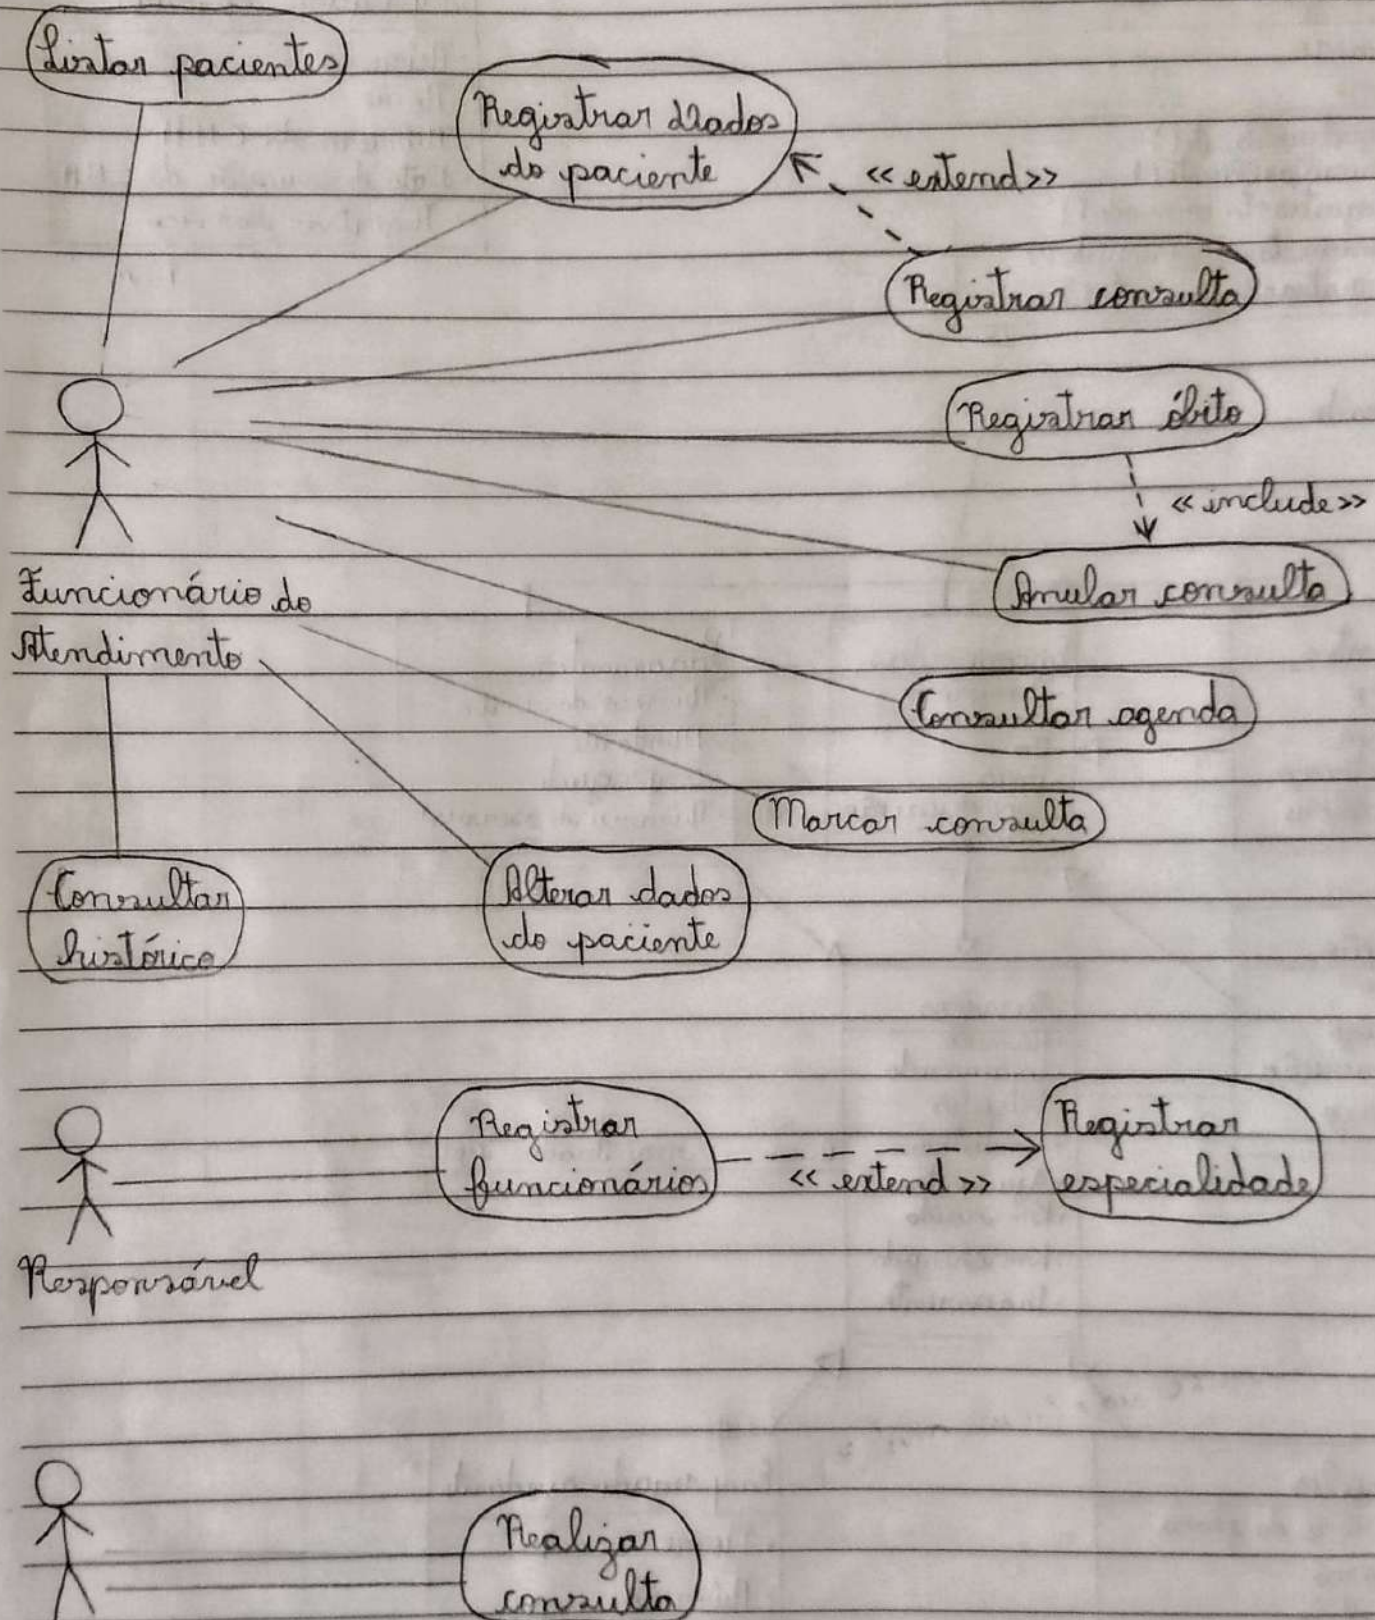 Listar pacientes
Registrar Dados
do paciente
<< extend >>
Registrar consulta
Registrar óbito
<< include >>
Anular consulta
Funcionário do
Atendimento
Consultar agenda
Marcar consulta
Consultar
histórico
Alterar dados
do paciente
Registrar
funcionários
<< extend >>
Registrar
especialidade
Responsável
Realizar
consulta